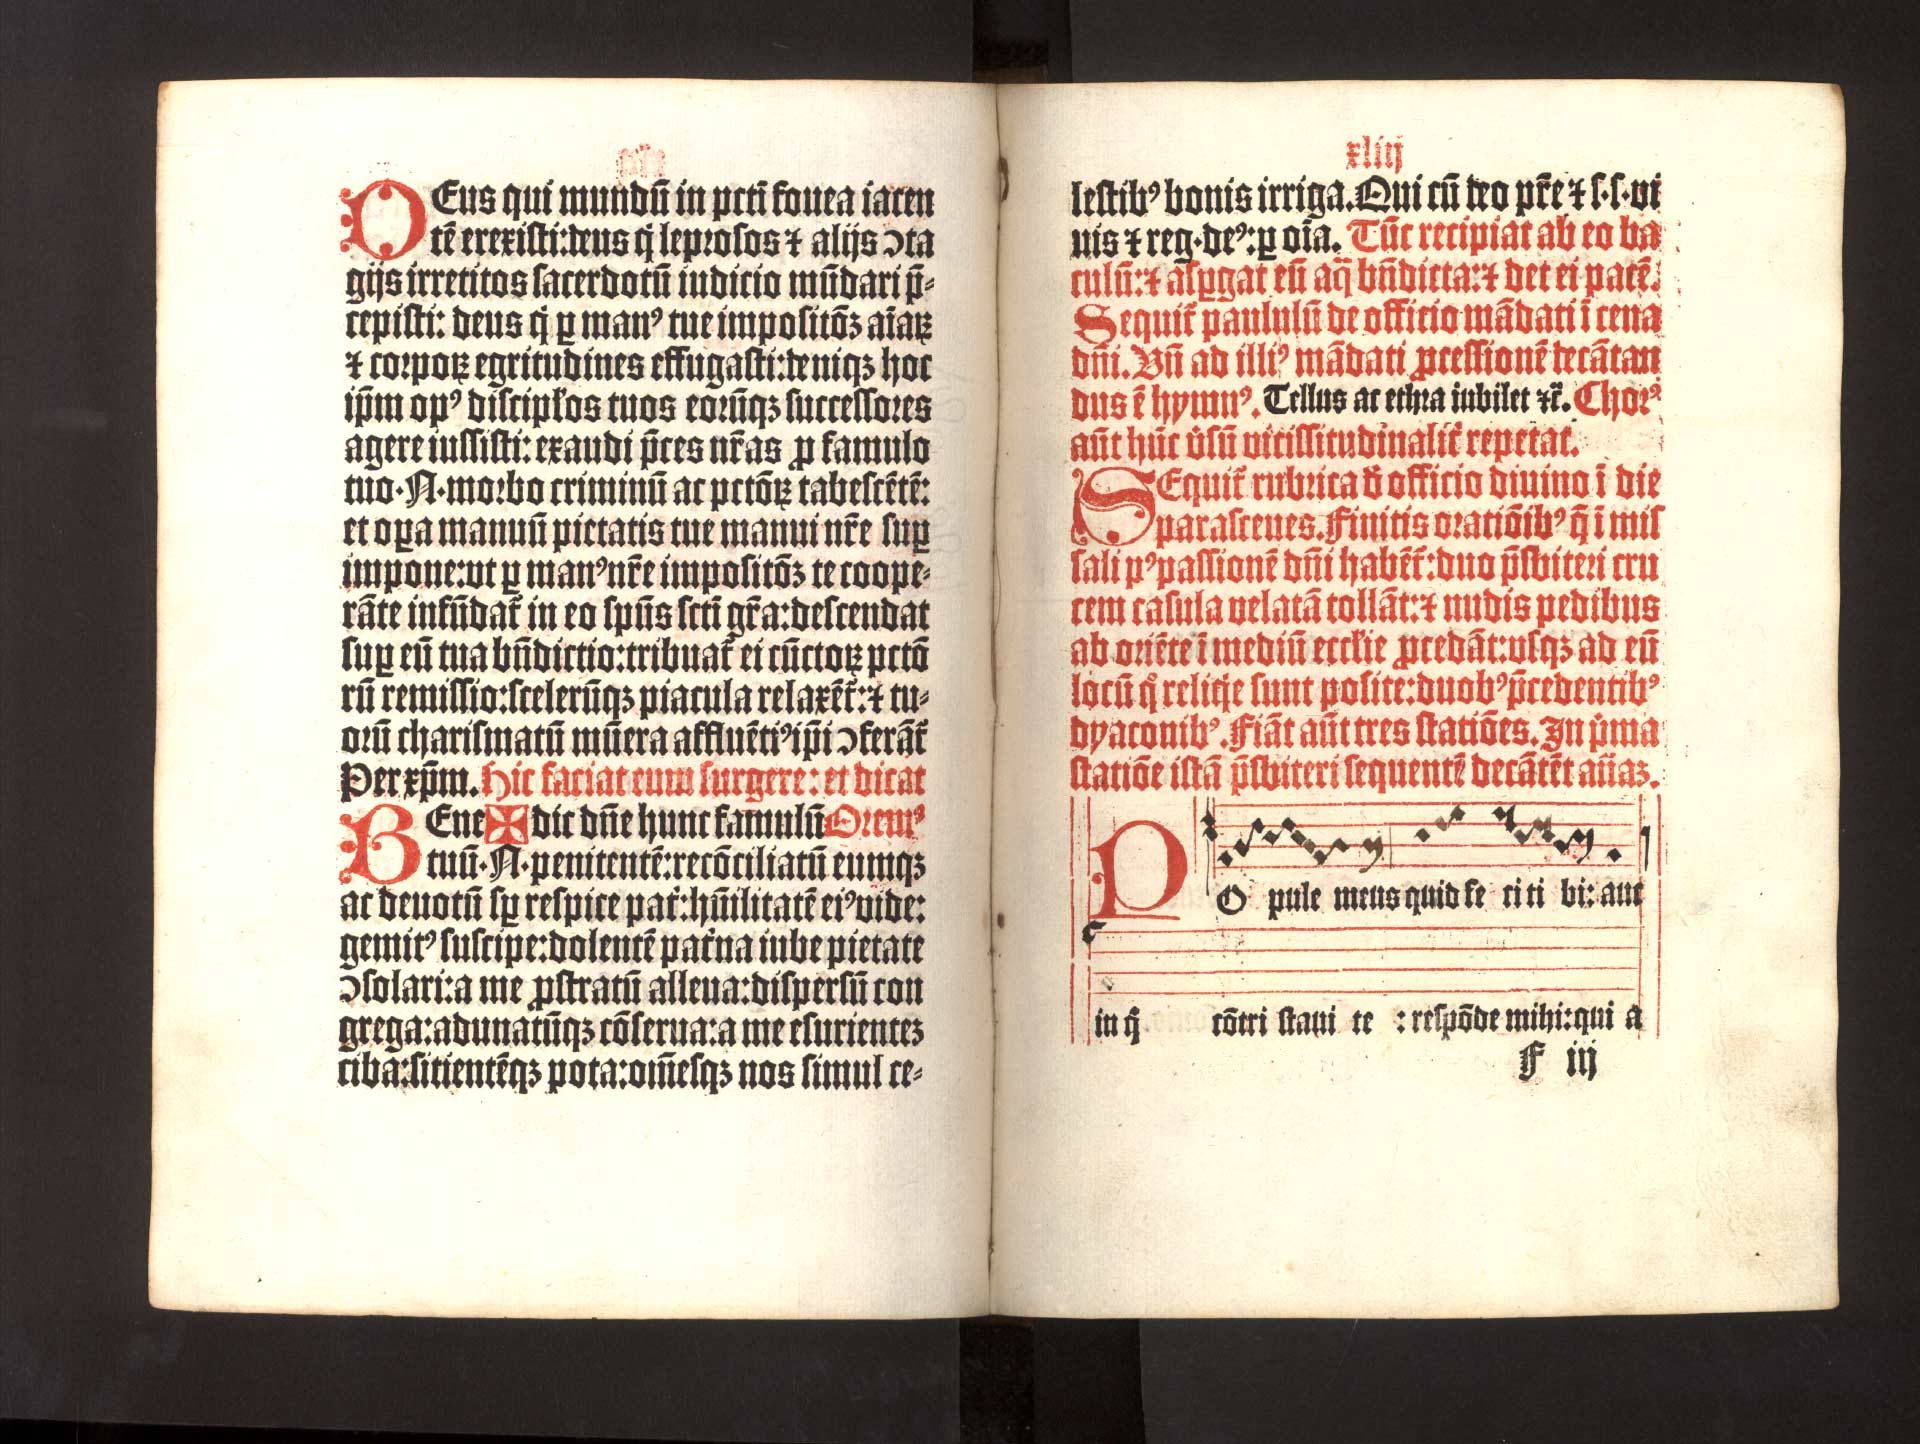 DEus qui mundū in pctī fouea iacen
tē erexisti: deus q̇ leprosos ⁊ alijs ↄta
gijs irretitos sacerdotū iudicio mūdari p̄⸗
cepisti: deus q̇ ꝑ manꝰ tue impositōꝫ aīaꝝ
⁊ corpoꝝ egritudines effugasti: deniqꝫ hoc
ip̄m opꝰ discipłos tuos eorūqꝫ successores
agere iussisti: exaudi p̄ces nr̄as ꝓ famulo
tuo·N·morbo criminū ac pctōꝝ tabescētē:
et oꝑa manuū pietatis tue manui nr̄e suꝑ
impone: vt ꝑ manꝰ nr̄e impositōꝫ te coope⸗
rāte infūdat̄ in eo spūs sctī gr̄a: descendat
suꝑ eū tua bn̄dictio: tribuat̄ ei cūctoꝝ pctō
rū remissio: scelerūqꝫ piacula relaxēt̄: ⁊ tu⸗
orū charismatū mūera affluētiꝰ ip̄i ↄferāt̄
Per xp̄m. Hic faciat eum surgere: et dicat
BEne ✠ dic dn̄e hunc famulū Oremꝰ
tuū·N·penitentē: recōciliatū eumqꝫ
ac deuotū sꝑ respice pat̄: hūilitatē eiꝰ vide:
gemitꝰ suscipe: dolentē pat̄na iube pietate
ↄsolari: a me ꝓstratū alleua: dispersū con
grega: adunatūqꝫ cōserua: a me esurienteꝫ
ciba: sitientēqꝫ pota: om̄esqꝫ nos simul ce⸗
xliij
lestibꝰ bonis irriga. Qui cū deo pr̄e ⁊ s·s·vi
uis ⁊ reg·deꝰ: ꝑ oīa. Tūc recipiat ab eo ba
culū: ⁊ asꝑgat eū aq̄ bn̄dicta: ⁊ det ei pacē.
Sequit̄ paululū de officio mādati ī cena
dn̄i. Vn̄ ad illiꝰ mādati ꝓcessionē decātan
dus ē hymnꝰ. Tellus ac ethra iubilet ⁊c̄. Chorꝰ
aūt hūc v̓sū vicissitudinalit̄ repetat.
SEquit̄ rubrica d̄ officio diuino ī die
parasceues. Finitis oratiōibꝰ q̄ ī mis
sali pꝰ passionē dn̄i habēt̄: duo p̄sbiteri cru
cem casula velatā tollāt: ⁊ nudis pedibus
ab oriēte ī mediū eccłie ꝓcedāt: vsqꝫ ad eū
locū q̊ reliq̇e sunt posite: duobꝰ p̄cedentibꝰ
dyaconibꝰ. Fiāt aūt tres statiōes. In p̓ma
statiōe istā p̄sbiteri sequentē decātēt an̄aꝫ.
PO pule meus quid fe ci ti bi: aut
in q̄ cōtri staui te : respōde mihi: qui a
F iij